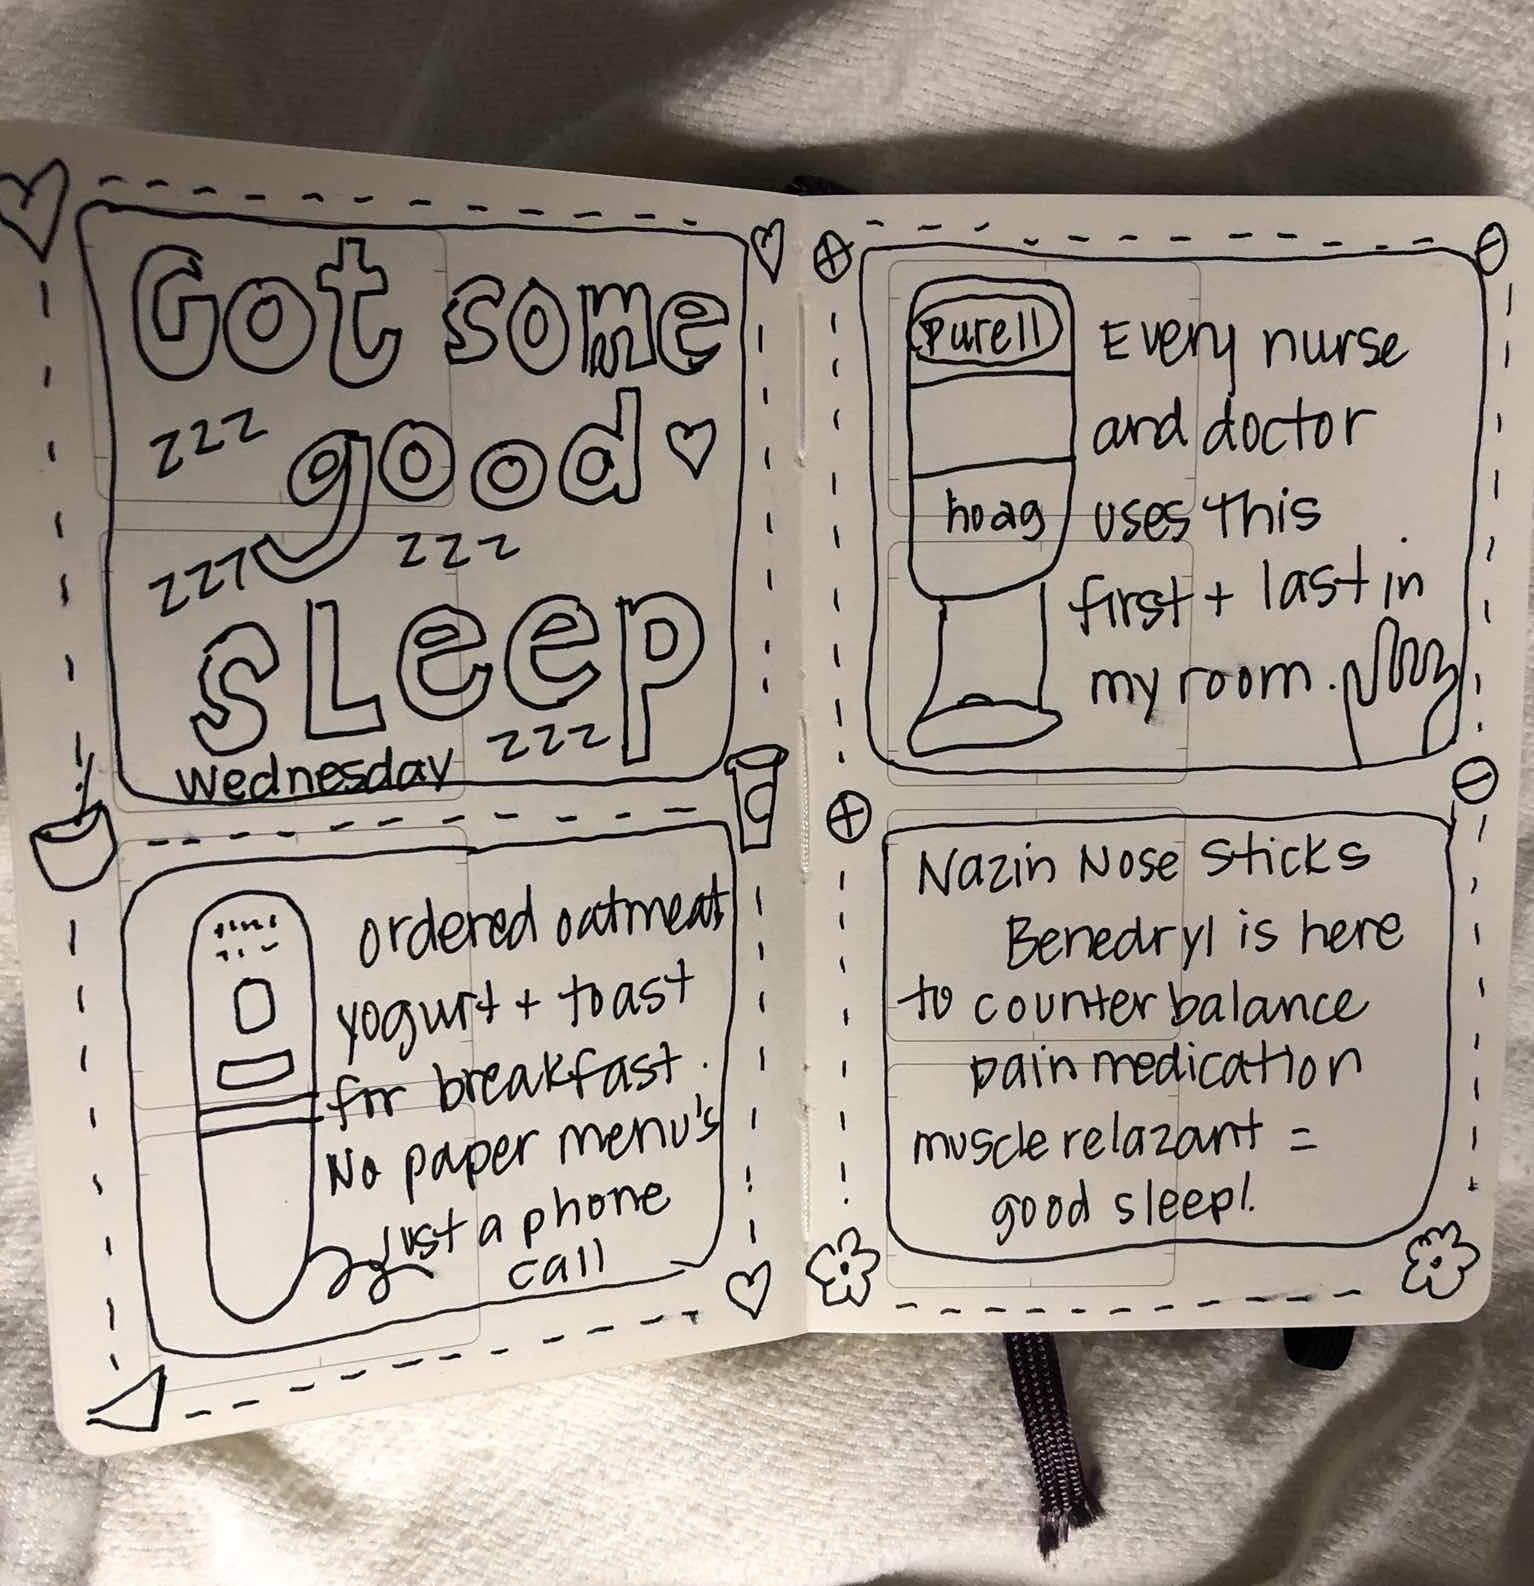 Got some
zzz good
zzz zzz
sLeep
wednesday zzz
ordered oatmeat
yogurt + toast
for breakfast.
No paper menu's
just a phone
call
purell
hoag
Every nurse
and doctor
uses this
first + last in
my room.
Nazin Nose Sticks
Benedryl is here
to counter balance
pain medication
muscle relazant =
good sleep!